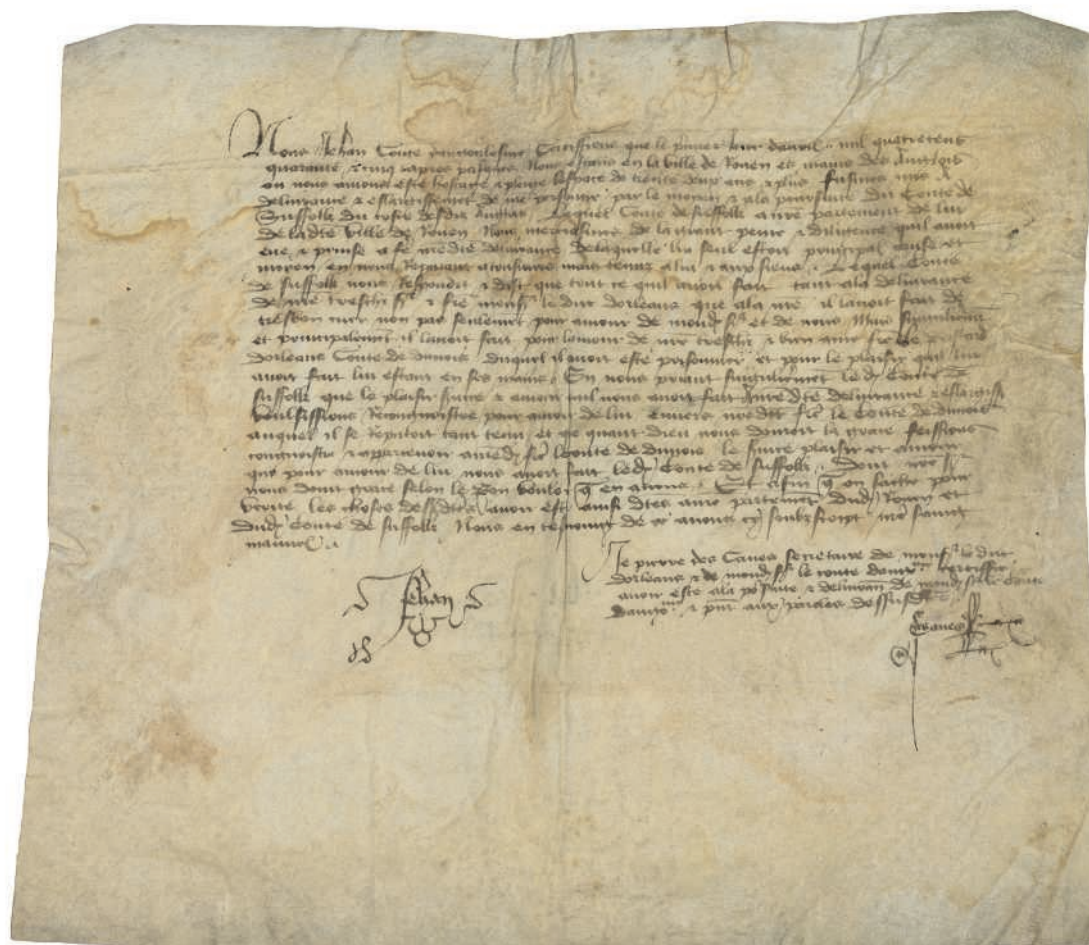 Nous Jehan Conte dangoulesme Certiffions que le premier jour davril mil quatre cens
quarante & cinq apres pasques Nous estans en la ville de Rouen es mains des Anglois
ou nous avions este hostage & pleige lespace de trente deux ans & plus fusmes mis a
delivrance & eslargissement de nre personne par le moyen & ala poursuite du Conte de
Suffolk du coste desdis Anglois Lequel Conte de Suffolk a nre partement de lui
de ladte ville de Rouen Nous merciasmes de la grant peine & diligence quil avoit
eue & prinse a nre dicte delivrance de laquelle lui seul estoit principal cause et
moyen en nous Reputant atousiours mais tenus alui & aux siens Lequel Conte
de Suffolk nous Respondit & dist que tout ce quil avoit fait tant ala delivrance
de nre treschier sr & frere monsr le duc dorleans que ala nre il lavoit fait de
tresbon cuer non pas seulement pour amour de mond sr et de nous Mais
et principalement il lavoit fait pour lamour de nre treschier & bien ame frere le
dorleans Conte de dunois duquel il avoit este prisonnier et pour le plaisir quil lui
avoit fait lui estant en ses mains En nous priant singulierement led Conte de
Suffolk que le plaisir & amour quil nous avoit fait a nre dte delivrance & eslargissemt
voulsissions Recongnoistre pour amour de lui envers nredit frere le Conte de dunois
auquel il se Reputoit tant tenu et que quant dieu nous donroit la grace feissions
congnoistre & apparevoir aud frere leconte de dunois le plaisir et amour
que pour amour de lui nous avoit fait led Conte de Suffolk Dont nre sr
nous doint grace selon le bon vouloir q en avons Et afin q on sache pour
verite les choses dessusdtes avoir este ainsi dtes anre partement dud Rouen et
dud Conte de Suffolk Nous en tesmoing de ce avons cy soubzscript nre saing
manuel
Jehan
Je pierre des Caves secretaire de monsr le duc
dorleans & de mond sr le conte dangoe certiffie
avoir este ala poursuite & delivrance de mond sr le conte
dangoe & pnt aux paroles dessusdtes
Caves